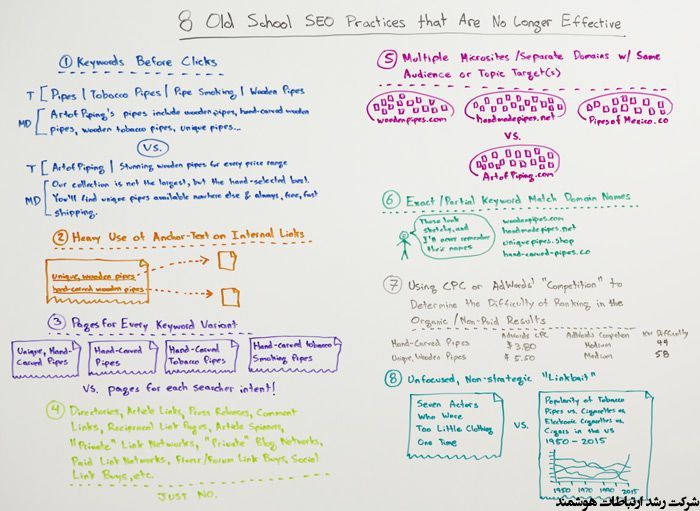 8 Old School SEO Practices that Are No Longer Effective
1 Keywords Before Clicks
T [ Pipes | Tobacco Pipes | Pipe Smoking | Wooden Pipes
MD [ Art of Piping's pipes include wooden pipes, hand-carved wooden
pipes, wooden tobacco pipes, unique pipes...
VS.
T [ Art of Piping | Stunning wooden pipes for every price range
MD [ Our collection is not the largest, but the hand-selected best.
You'll find unique pipes available nowhere else & always, free, fast
shipping.
2 Heavy Use of Anchor-Text on Internal Links
unique, wooden pipes
hand-carved wooden pipes
3 Pages for Every Keyword Variant
Unique, Hand-
Carved Pipes
Hand-Carved
Pipes
Hand-Carved
Tobacco Pipes
Hand-Carved tobacco
Smoking Pipes
VS. pages for each searcher intent!
4 Directories, Article Links, Press Releases, Comment
Links, Reciprocal Link Pages, Article Spinners,
"Private" Link Networks, "Private" Blog Networks,
Paid Link Networks, Fiverr/Forum Link Buys, Social
Link Buys, etc.
JUST NO.
5 Multiple Microsites/Separate Domains w/ Same
Audience or Topic Target(s)
woodenpipes.com
handmadepipes.net
PipesofMexico.co
VS.
ArtofPiping.com
6 Exact/Partial Keyword Match Domain Names
These look
sketchy, and
I'll never remember
their names
woodenpipes.com
handmadepipes.net
uniquepipes.shop
hand-carved-pipes.co
7 Using CPC or AdWords' "Competition" to
Determine the Difficulty of Ranking in the
Organic/Non-Paid Results
Adwords CPC AdWords Competition KW Difficulty
Hand-Carved Pipes $3.80 Medium 49
Unique, Wooden Pipes $5.50 Medium 58
8 Unfocused, Non-strategic "Linkbait"
Seven Actors
Who Wore
Too Little Clothing
One Time
VS.
Popularity of Tobacco
Pipes vs. Cigarettes vs.
Electronic Cigarettes vs.
Cigars in the US
1950-2015
1950 1970 1990 2015
شرکت رشد ارتباطات هوشمند